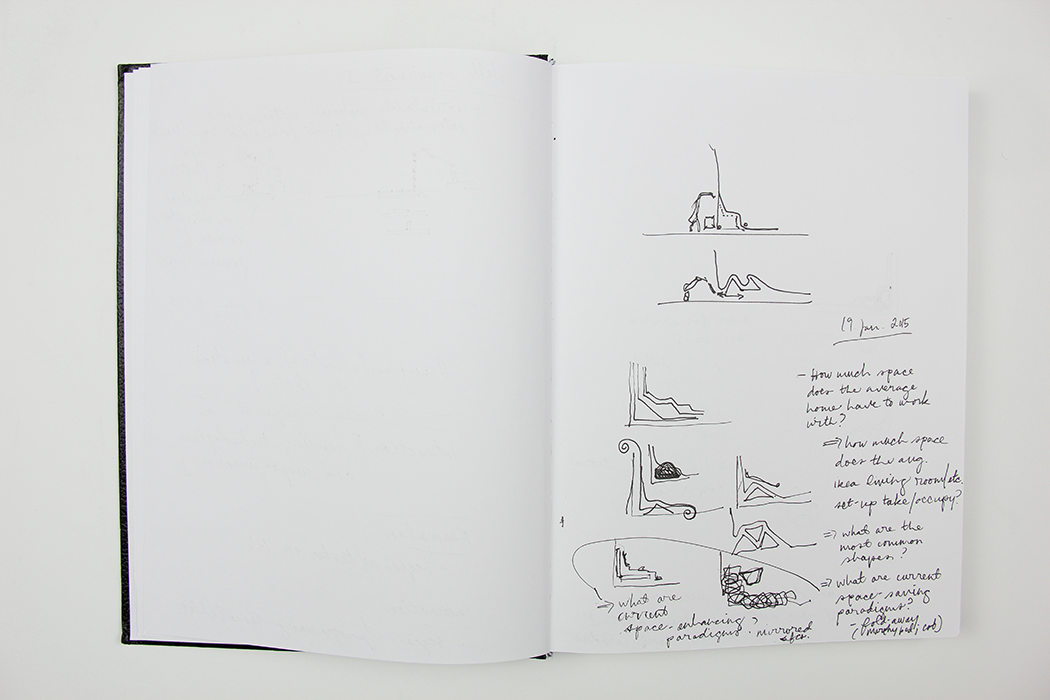 19 Jan. 2015
- How much space
does the average
home have to work
with?
⇒ how much space
does the avg.
ikea living room/etc.
set-up take/occupy?
⇒ what are the
most common
shapes?
⇒ what are current
space-saving
paradigms?
- fold-away
(murphy bed;
⇒ what are
current
space-enhancing
paradigms? mirrored